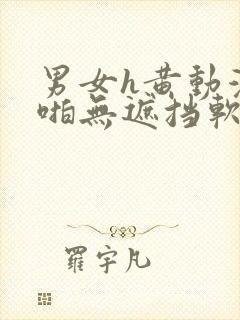 男女h黄動
啪無遮挡軟
羅宇凡